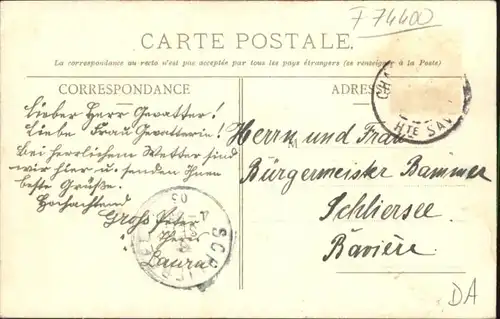 F 74400
CARTE POSTALE.
La correspondance au recto n'est pas acceptée par tous les pays étrangers (se renseigner à la Poste)
CORRESPONDANCE
Lieber Herr Gevatter!
Liebe Frau Gevatterin!
Bei herrlichem Wetter sind
wir hier u. senden Ihnen
beste Grüße.
Hochachtend
Groß Peter
Laura
ADRESSE
Herrn und Frau
Bürgermeister Bammer
Schliersee
Bavière
CHA
HTE SAV
SCHLIERSEE
05
DA